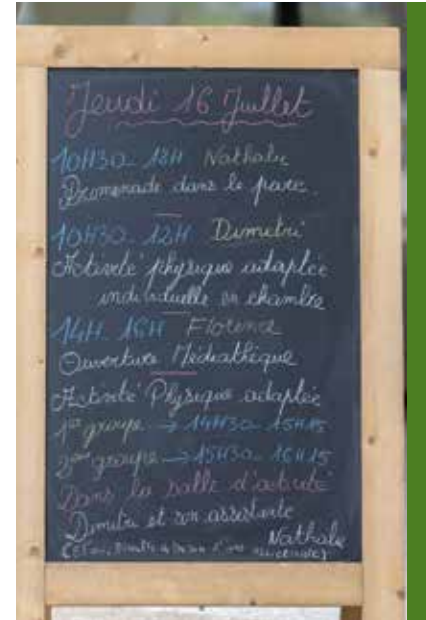 Jeudi 16 Juillet
10H30-12H Nathalie
Promenade dans le parc.
10H30-12H Dimitri
Activité physique adaptée
individuelle en chambre
14H-16H Florence
Ouverture Médiathèque
Activité Physique adaptée
1er groupe → 14H30-15H15
2ème groupe → 15H30-16H15
Dans la salle d'activité
Dimitri et son assistante
Nathalie